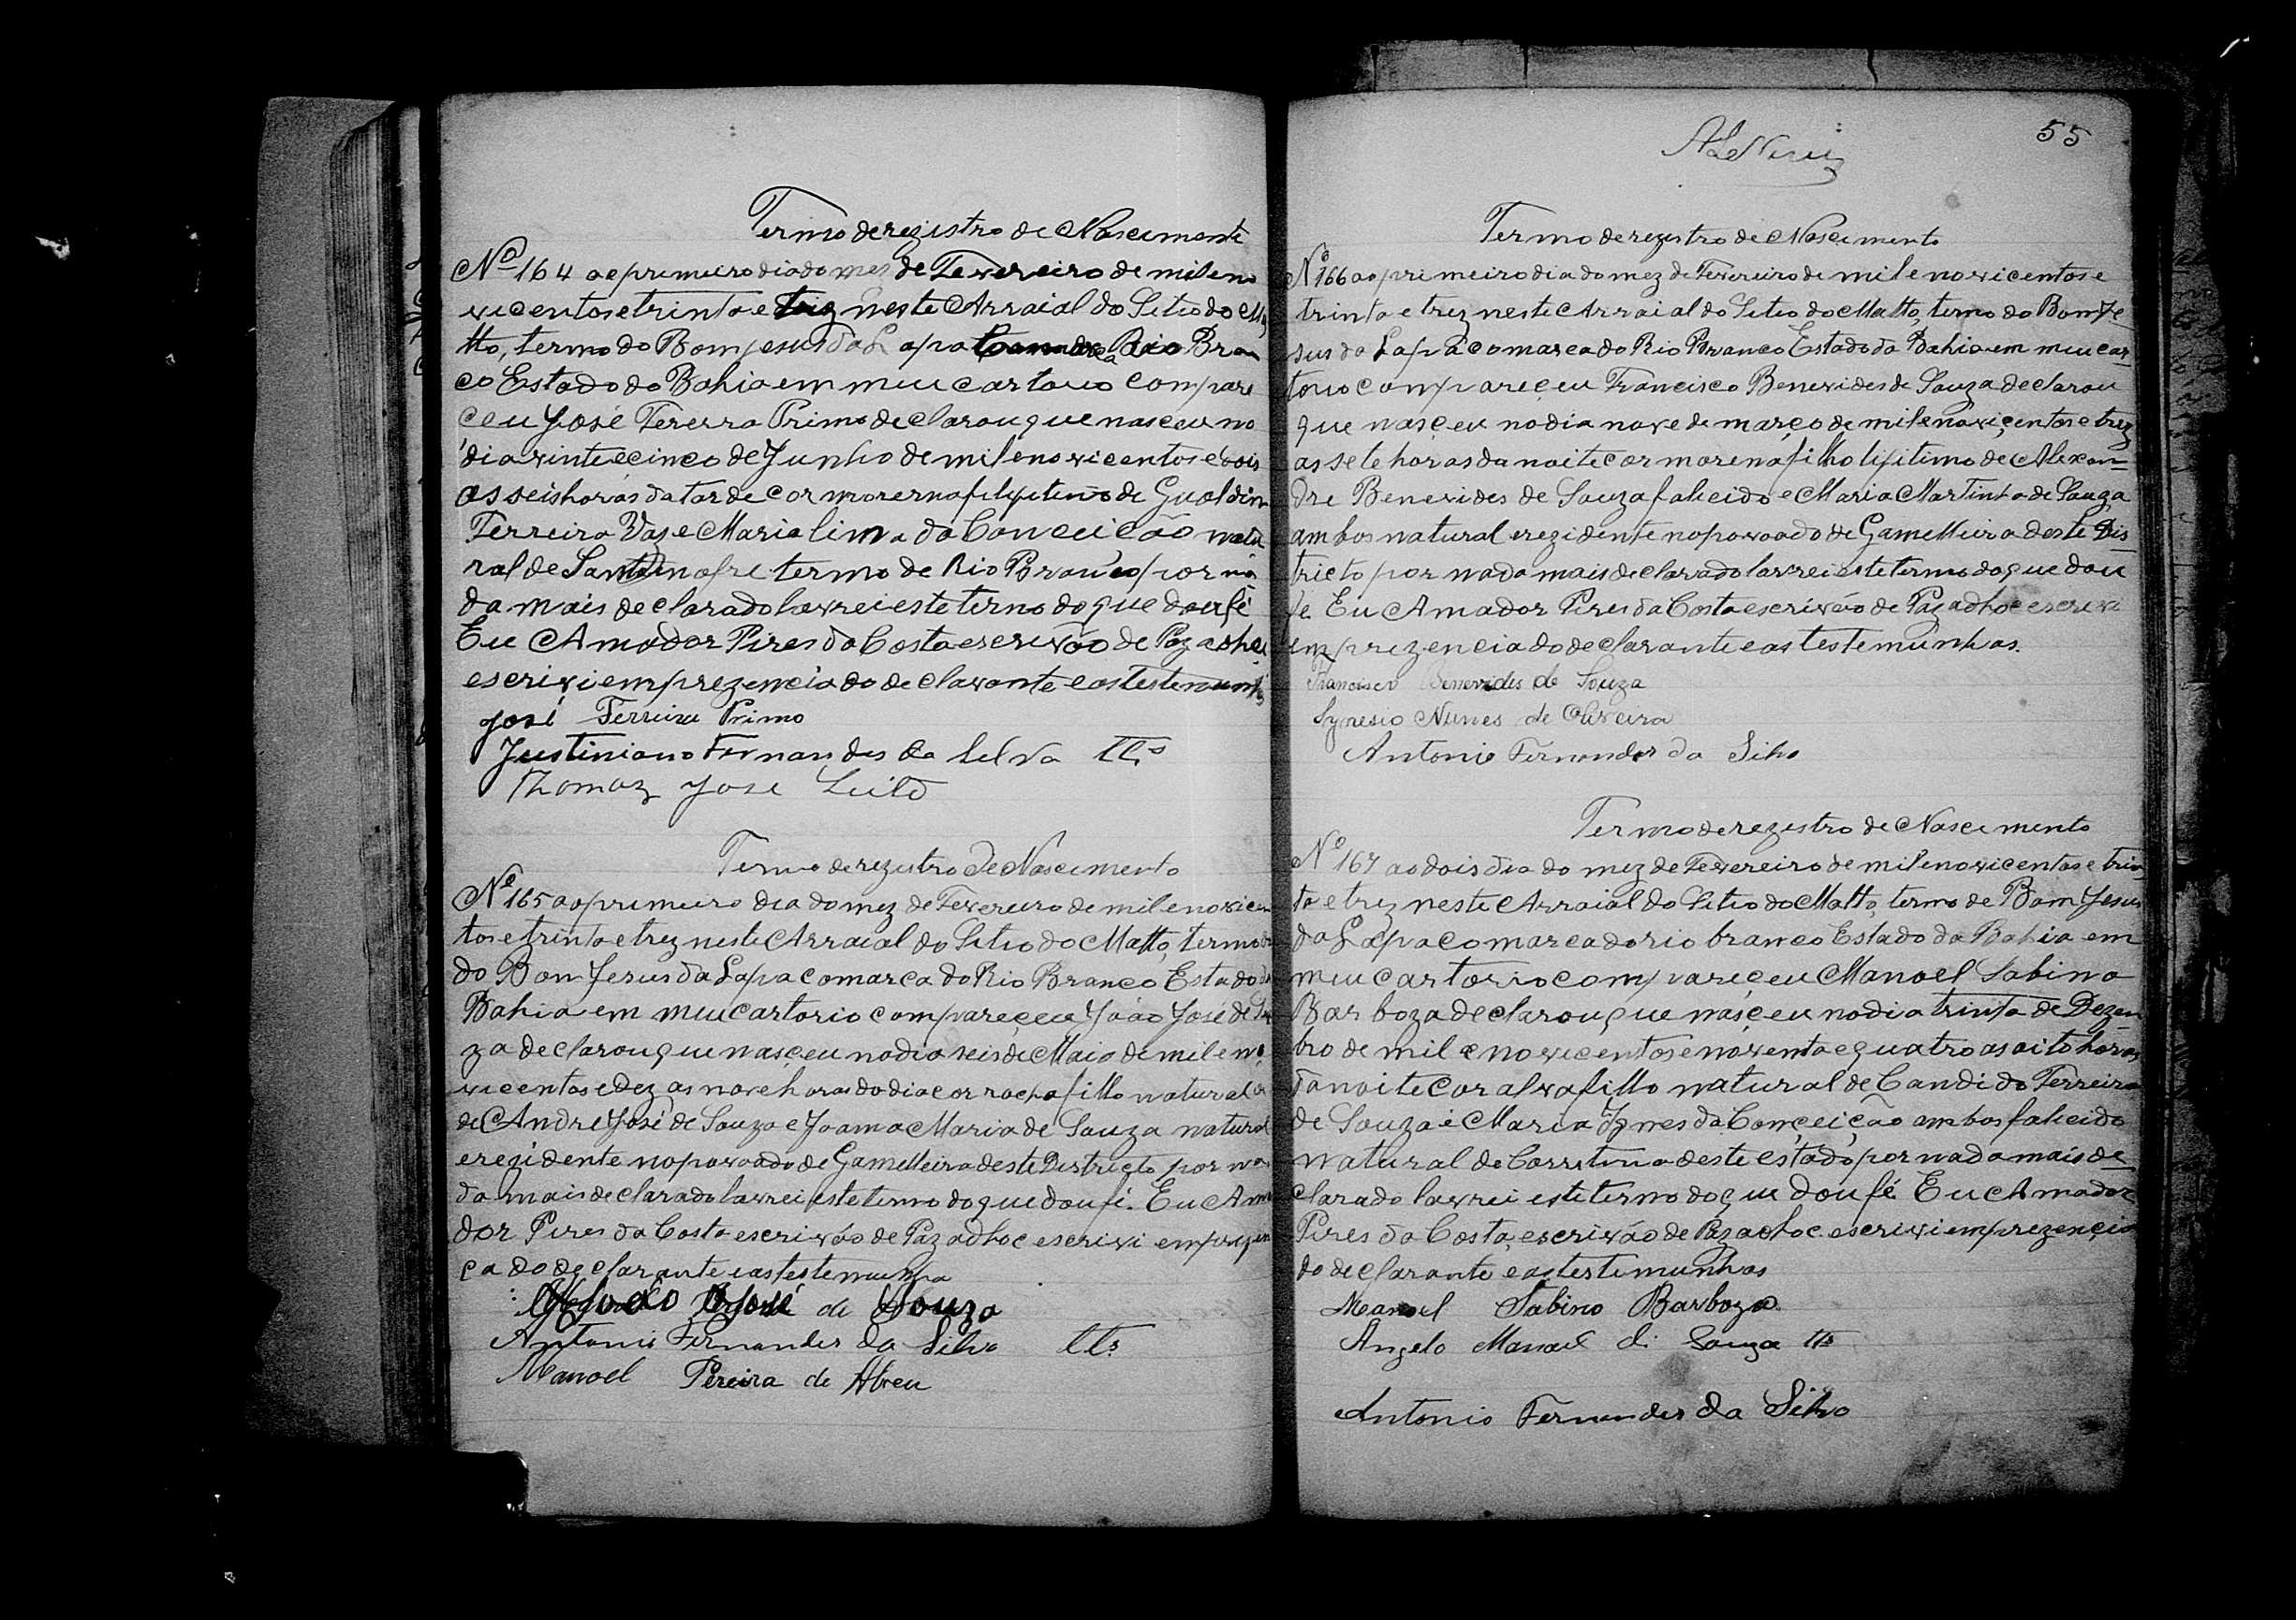 Termo de registro de Nascimento
Nº 164 ao primeiro dia do mes de Fevereiro de mil e no
vicentos e trinta e trez neste Arraial do Sitio do Ma
tto, termo do Bom jesus da Lapa Comarca Rio Bran
co Estado da Bahia em meu cartorio compare
ceu José Fererra Primo declarou que nasceu no
dia vinte e cinco de Junho de mil e novicentos e dois
as seis horas da tarde cor morerna de Gualdin
Ferreira Vaz e Maria lima da Conceição natu
ral de termo de Rio Branco por na
da mais declarado lavrei este termo do que dou fé
Eu Amador Pires da Costa escrivão de Paz adhoc
escrivi em prezencia do declarante e as testemunhas
José Ferreira Primo
Justiniano Fernandes da Selva tts
Thomaz José Leite
Termo de rezistro de Nascimento
Nº 165 ao primeiro dia do mez de Fevereiro de mil e novicen
tos e trinta e trez neste Arraial do Sitio do Matto, termo
do Bon Jesus da Lapa comarca do Rio Branco Estado da
Bahia em meu cartorio compareçeu João José de Sou
za declarou que nasçeu no dia seis de Maio de mil e no
vicentos e dez as nove horas do dia cor rocha filho natural
de André José de Souza e Joanna Maria de Souza natural
e rezidente no povoado de Gamelleira deste Districto por na
da mais declarado lavrei este termo do que dou fé. Eu Ama
dor Pires da Costa escrivão de Paz adhoc escrivi em prezen
ça do declarante e as testemunha
João José de Souza
Antonio Fernandes da Silva tts
Manoel Pereira de Abreu
55
Termo de registro de Nascimento
Nº 166 ao primeiro dia do mez de Fevereiro de mil e novicentos e
trinta e trez neste Arraial do Sitio do Matto, termo do Bom Je
sus da Lapa comarca do Rio Branco Estado da Bahia em meu car
torio compareçeu Francisco Benevides de Souza declarou
que nasçeu no dia nove de março de mil e noviçentos e trez
as sete horas da noite cor morena filho lifitimo de Alexan
dre Benevides de Souza falicido e Maria Martinha de Souza
ambos natural e rezidente no povoado de Gamelleira deste Dis
tricto por nada mais declarado lavrei este termo do que dou
fe. Eu Amador Pires da Costa escrivão de Paz adhoc escrivi
em prezencia do declarante e as testemunhas.
Francisco Benevides de Souza
Synesio Nunes de Oliveira
Antonio Fernandes da Silva
Termo de rezistro de Nascimento
Nº 167 ao dois dia do mez de Fevereiro de mil e novicentos e trin
ta e trez neste Arraial do Sitio do Matto, termo de Bom Jesus
da Lapa comarca do rio branco Estado da Bahia em
meu cartorrio compareçeu Manoel Sabino
Barboza declarou que nasçeu no dia trinta de Dezem
bro de mil e novicentos e noventa e quatro as oito horas
da noite Cor alva filho natural de Candido Ferreira
de Souza e Maria Ignes da Conçeição ambos falicido
natural de Correntina deste estado por nada mais de
clarado lavrei este termo do que dou fé Eu Amador
Pires da Costa, escrivão de Paz adhoc. escrivi em prezençia
do declarante e as testemunhas
Manoel Sabino Barboza.
Angelo Manoel de Souza tts
Antonio Fernandes da Silva